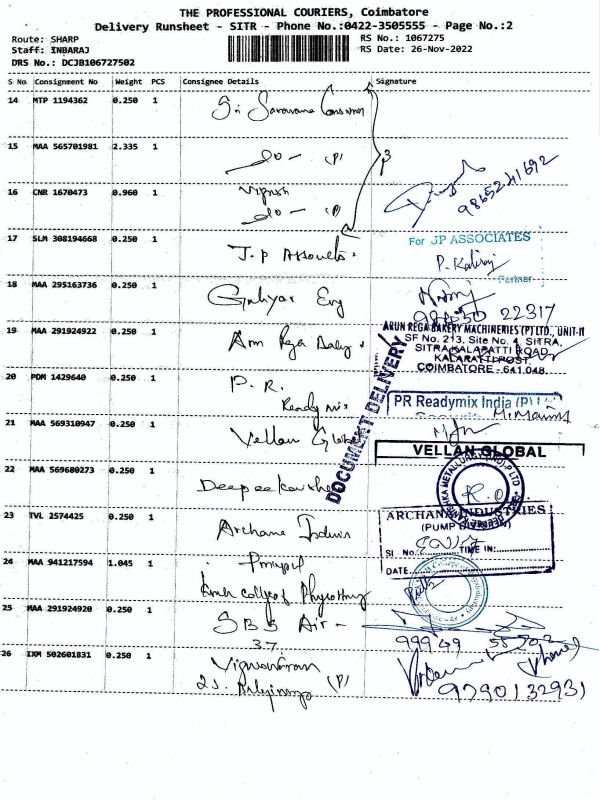 THE PROFESSIONAL COURIERS, Coimbatore
Delivery Runsheet - SITR - Phone No.:0422-3505555 - Page No.:2
Route: SHARP
RS No.: 1067275
Staff: INBARAJ
RS Date: 26-Nov-2022
DRS No.: DCJB106727502
S No Consignment No Weight PCS Consignee Details Signature
14 MTP 1194362 0.250 1 Sri Saravana
15 MAA 565701981 2.335 1 do - (P)
9865241692
16 CNR 1670473 0.960 1
do - (P)
17 SLM 308194668 0.250 1 J.P Associates
For JP ASSOCIATES
P. Kaliraj
Partner
18 MAA 295163736 0.250 1 Eng
22317
19 MAA 291924922 0.250 1 Arun Rega
ARUN REGA BAKERY MACHINERIES (P) LTD., UNIT-II
SF No. 213, Site No. 4, SITRA,
SITRA KALAPATTI ROAD,
KALAPATTI POST,
COIMBATORE - 641 048.
DOCUMENT DELIVERY
20 PDM 1429640 0.250 1 P. R.
Ready mix
PR Readymix India (P)
21 MAA 569310947 0.250 1 Vellan Global
VELLAN GLOBAL
22 MAA 569680273 0.250 1
23 TVL 2574425 0.250 1 Archana Indus
ARCHANA INDUSTRIES
SI. No. TIME IN:
DATE
24 MAA 941217594 1.045 1 Principal
College of Physiotherapy
25 MAA 291924920 0.250 1 SBS Air -
37.
99949
26 IXM 502601831 0.250 1 Viswanathan
(P)
9790132931